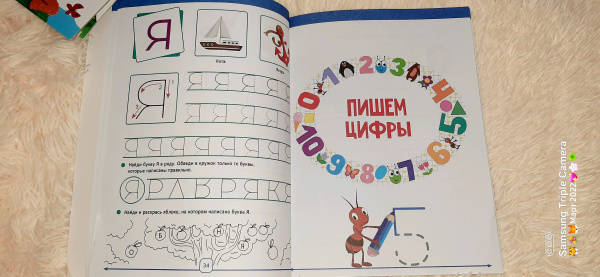 Я
Яхта
Якорь
Я
Я Я Я Я Я
Я Я Я Я Я
Я Я Я Я Я Я Я Я
Найди букву Я в ряду. Обведи в кружок только те буквы,
которые написаны правильно.
Найди и раскрась яблоко, на котором написана буква Я.
Б
Н
Я
34
ПИШЕМ
ЦИФРЫ
0 1 2 3 4 5 6 7 8 9 10
5
Samsung Triple Camera
Март 2022